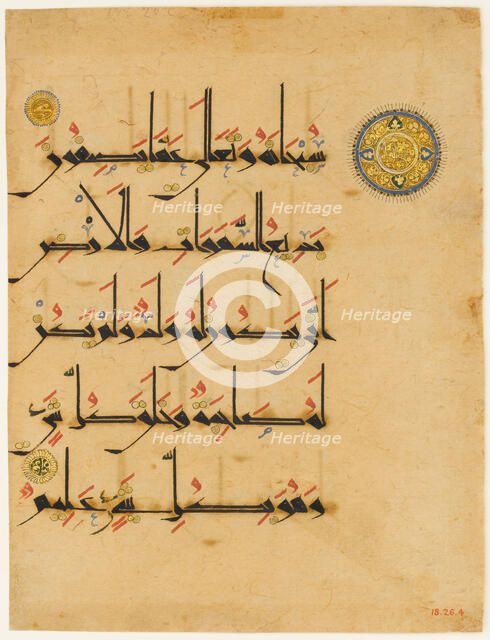 سُبْحَانَهُ وَتَعَالَى عَمَّا يَصِفُونَ
بَدِيعُ السَّمَوَاتِ وَالْأَرْضِ
أَنَّى يَكُونُ لَهُ وَلَدٌ وَلَمْ تَكُنْ
لَهُ صَاحِبَةٌ وَخَلَقَ كُلَّ شَيْءٍ
وَهُوَ بِكُلِّ شَيْءٍ عَلِيمٌ
18.26.4
Heritage Heritage Heritage
Heritage Heritage
Heritage Heritage Heritage
©